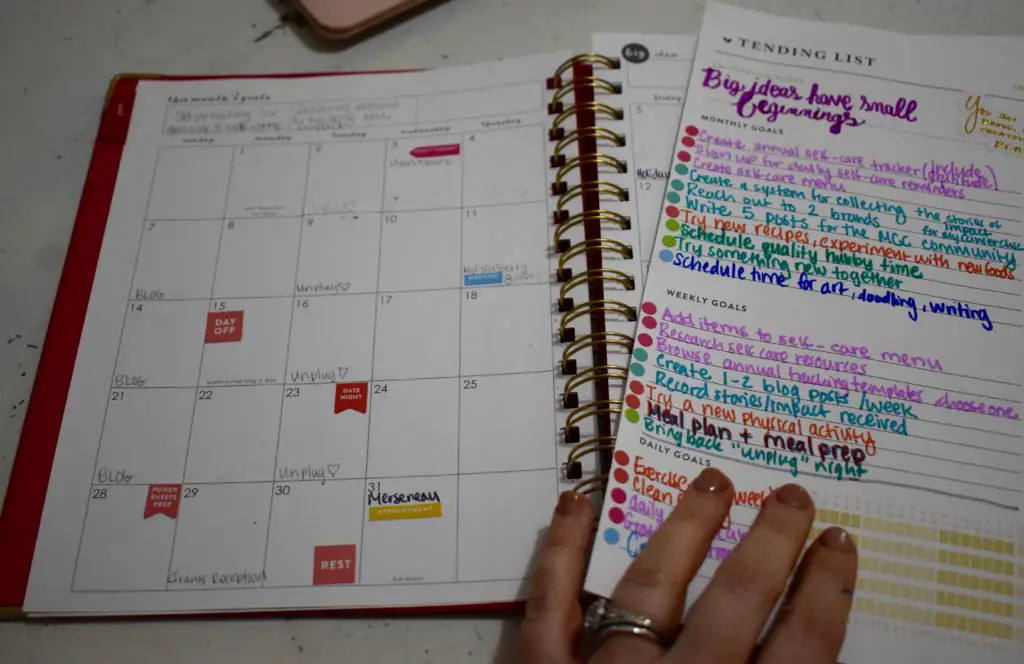 this month's goals
sunday monday tuesday wednesday thursday
1 2 3 4
7 8 9 10 11
Unplug♡
BLOG
14 15 16 17 18
DAY
OFF
BLOG Unplug♡
21 22 23 24 25
DATE
NIGHT
BLOG Unplug♡
28 29 30 31
POWER
SHEETS
PREP
Merseneau
APPOINTMENT
REST
Grants Reception
Big idea
friday
5
Holiday
12
TENDING LIST
Big ideas have small
beginnings
You are
BRAVE,
CREATIVE
MONTHLY GOALS
Create annual self-care tracker (include
gratitude)
Sign up for daily self-care reminders
Create self-care menu
Create a system for collecting the stories of
impact
Reach out to 2 brands
Write 5 posts for the MCC community
Try new recipes, experiment with new foods
Schedule quality hubby time
Try something new together
Schedule time for art, doodling, writing
WEEKLY GOALS
Add items to self-care menu
Research self care resources
Browse annual tracking templates, choose one
Create 1-2 blog posts /week
Record stories/impact received
Try a new physical activity
Meal plan + meal prep
Bring back "unplug" night
DAILY GOALS
Exercise
Clean
daily